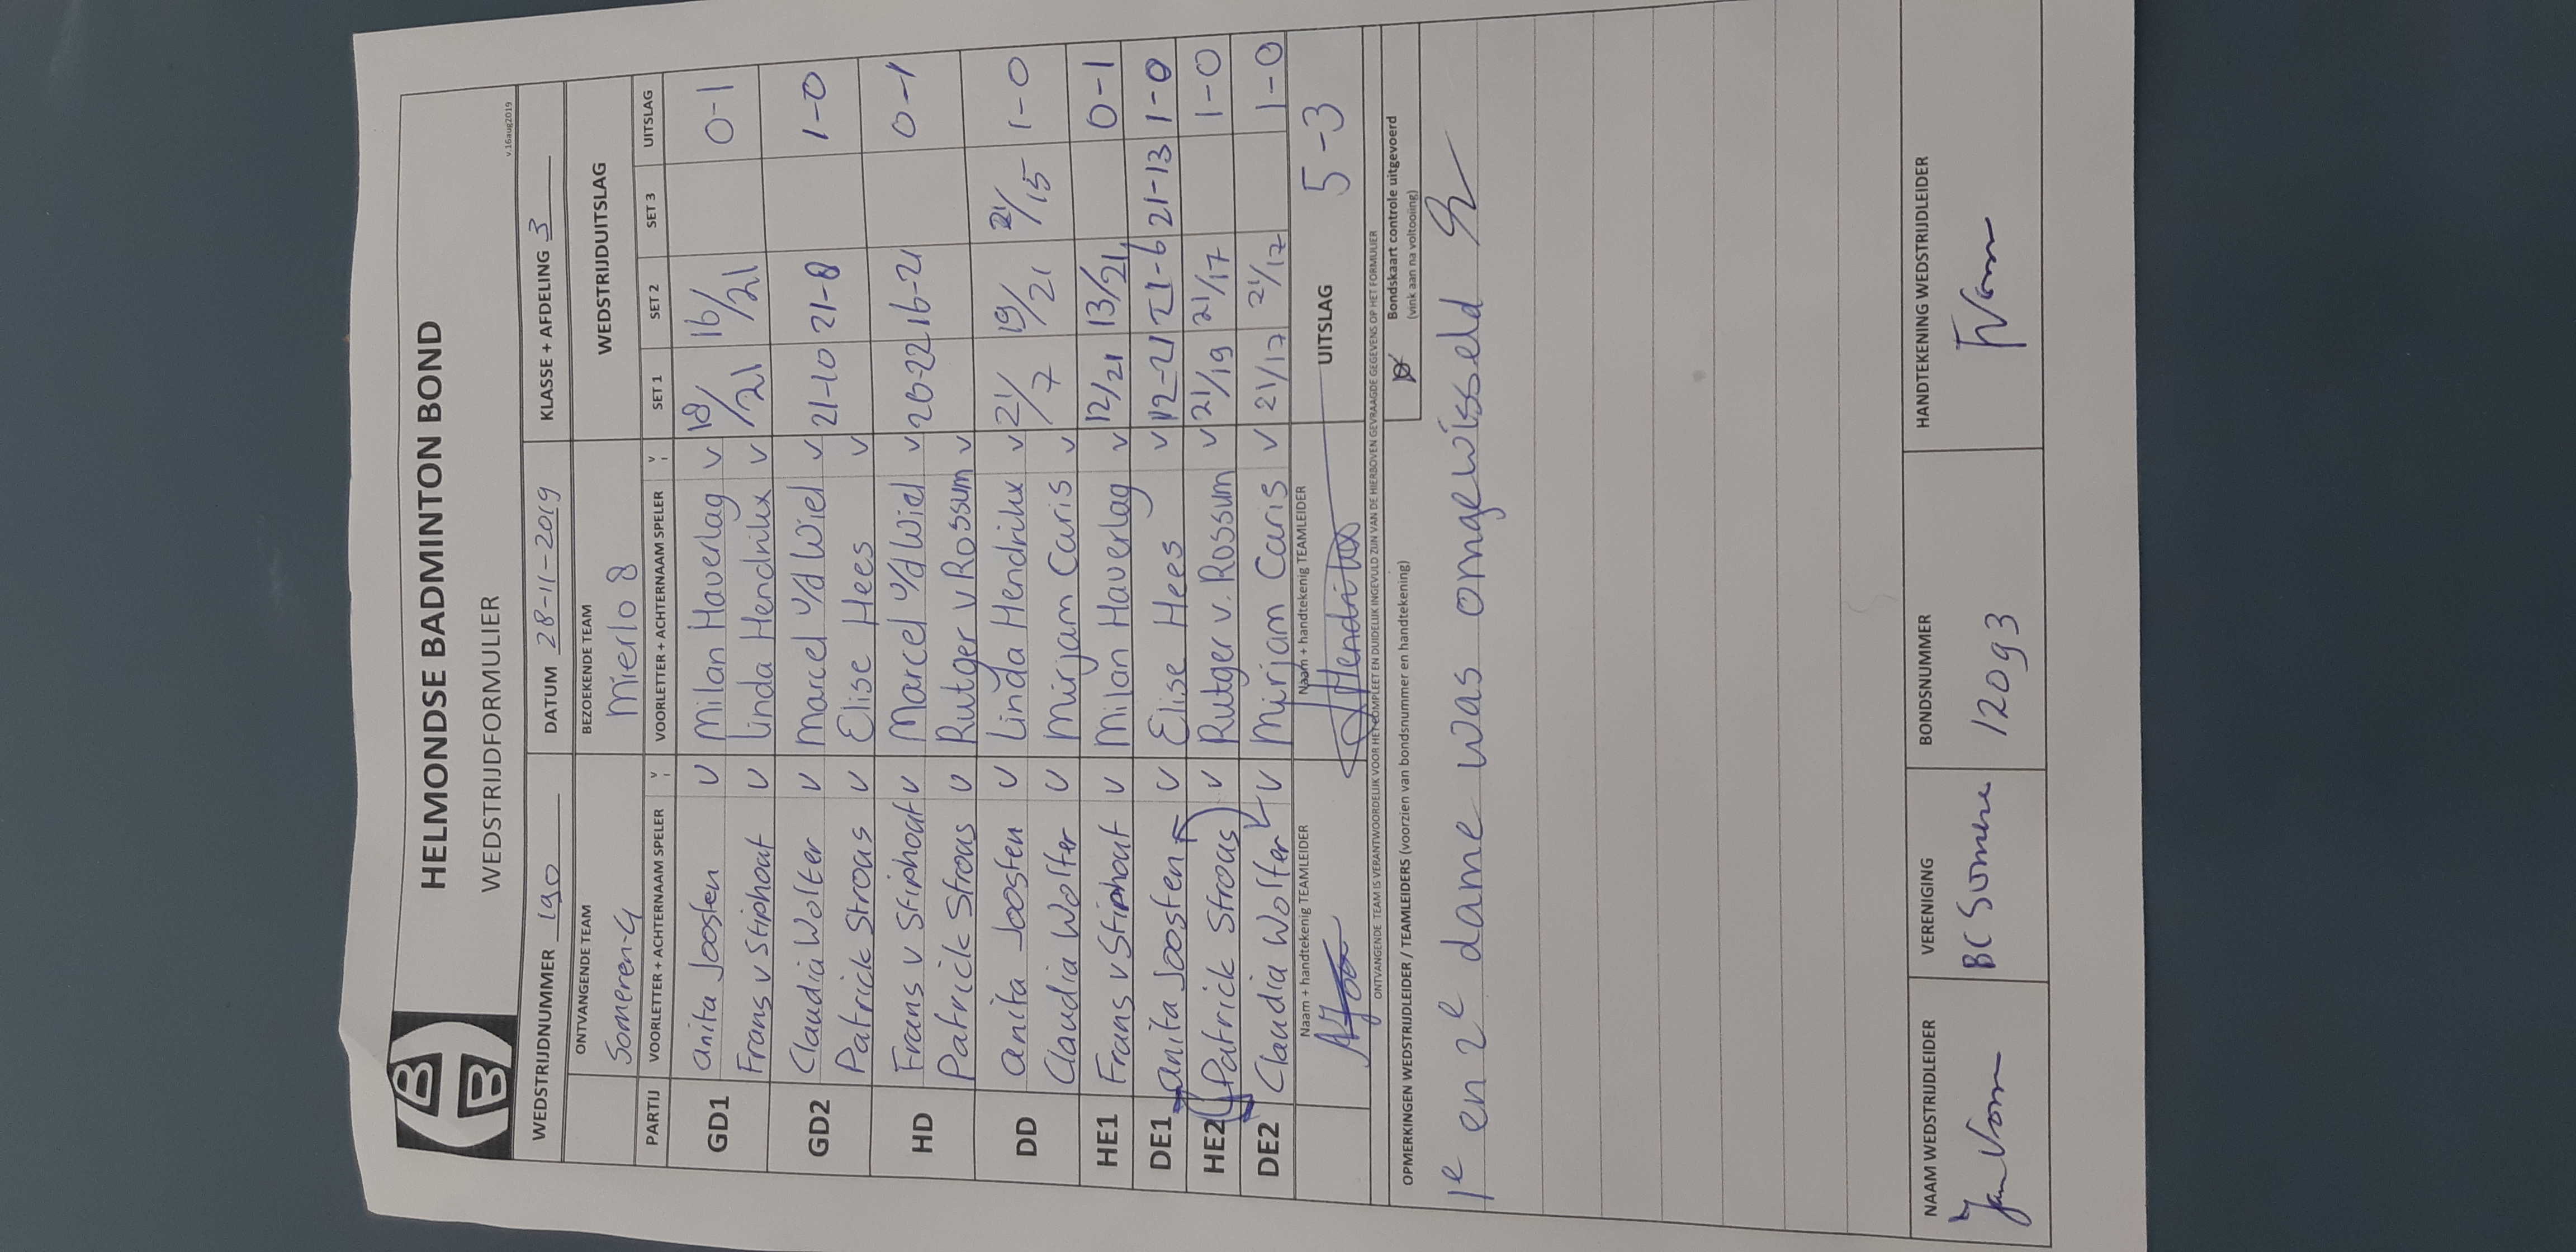 HELMONDSE BADMINTON BOND
WEDSTRIJDFORMULIER
v.16aug2019
WEDSTRIJDNUMMER 190 DATUM 28-11-2019 KLASSE + AFDELING 3
ONTVANGENDE TEAM BEZOEKENDE TEAM WEDSTRIJDUITSLAG
Someren-4 Mierlo 8
PARTIJ VOORLETTER + ACHTERNAAM SPELER V VOORLETTER + ACHTERNAAM SPELER V SET 1 SET 2 SET 3 UITSLAG
GD1 anita Joosten v Milan Haverlag v 18/21 16/21 0-1
Frans v Stiphout v Linda Hendrikx v
GD2 Claudia Wolter v Marcel v/d Wiel v 21-10 21-8 1-0
Patrick Stroas v Elise Hees v
HD Frans v Stiphout v Marcel v/d Wiel v 20-22 16-21 0-1
Patrick Stroas v Rutger v Rossum v
DD anita Joosten v Linda Hendrikx v 21/7 19/21 21/15 1-0
Claudia Wolter v Mirjam Caris v
HE1 Frans v Stiphout v Milan Haverlag v 12/21 13/21 0-1
DE1 anita Joosten v Elise Hees v 12-21 21-6 21-13 1-0
HE2 (Patrick Stroas) v Rutger v. Rossum v 21/19 21/17 1-0
DE2 Claudia Wolter v Mirjam Caris v 21/17 21/17 1-0
Naam + handtekenig TEAMLEIDER Naam + handtekenig TEAMLEIDER UITSLAG 5-3
Hendrikx
ONTVANGENDE TEAM IS VERANTWOORDELIJK VOOR HET COMPLEET EN DUIDELIJK INGEVULD ZIJN VAN DE HIERBOVEN GEVRAAGDE GEGEVENS OP HET FORMULIER
OPMERKINGEN WEDSTRIJDLEIDER / TEAMLEIDERS (voorzien van bondsnummer en handtekening) Bondskaart controle uitgevoerd
(vink aan na voltooiing)
1e en 2e dame was omgewisseld
NAAM WEDSTRIJDLEIDER VERENIGING BONDSNUMMER HANDTEKENING WEDSTRIJDLEIDER
BC Someren 12093